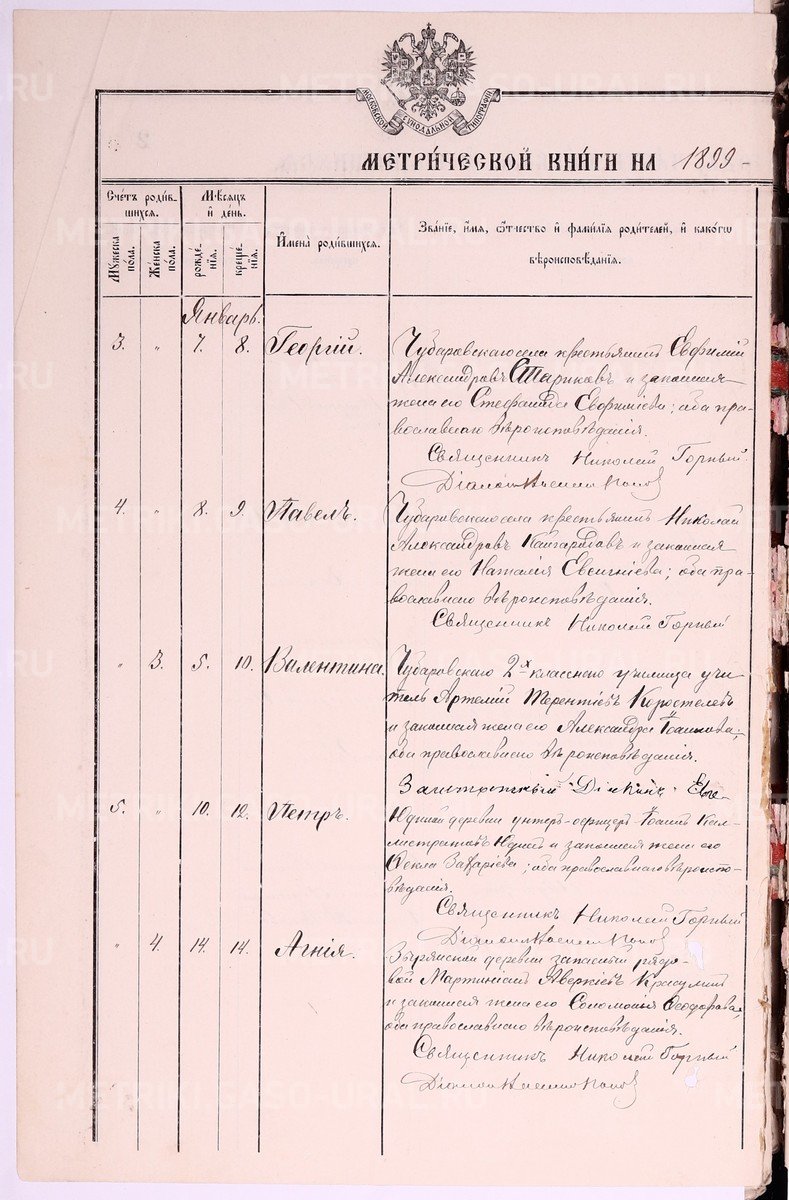 МОСКОВСКОЙ СУНОДАЛЬНОЙ ТИПОГРАФІИ
МЕТРИ́ЧЕСКОЙ КНИ́ГИ НА 1899
Сче́тъ роди́в-
шихся.
Мѣ́сяцъ
и де́нь.
Му́жеска по́ла.
Же́нска по́ла.
рожде́-
нїя.
креще́-
нїя.
И҆мена̀ роди́вшихся.
Зва́нїе, и҆́мя, ѻ҆́тчество и҆ фами́лїя роди́телей, и҆ како́гѡ
вѣроисповѣ́данїя.
Январь.
3. " 7. 8. Георгій.
Чубаровскаго села крестьянинъ Евфимій
Александровъ Стариковъ и законная
жена его Стефанида Евфиміева; оба пра-
вославнаго вѣроисповѣданія.
Священникъ Николай Горный.
Діаконъ
4. " 8. 9. Павелъ.
Чубаровскаго села крестьянинъ Николай
Александровъ Кайгородовъ и законная
жена его Наталія Евгеніева; оба пра-
вославнаго вѣроисповѣданія.
Священникъ Николай Горный
" 3. 5. 10. Валентина.
Чубаровскаго 2х класснаго училища учи-
тель Артемій Терентіевъ Коростелевъ
и законная жена его Александра Іоаннова;
оба православнаго вѣроисповѣданія.
Заштатный Діаконъ
5. " 10. 12. Петръ.
Юдиной деревни унтеръ-офицеръ Іоаннъ Кал-
листратовъ Юдинъ и законная жена его
Ѳекла Захаріева; оба православнаго вѣроиспо-
вѣданія.
Священникъ Николай Горный
Діаконъ
" 4. 14. 14. Агнія.
Зырянской деревни запасный рядо-
вой Мартиніанъ Аверкіевъ
и законная жена его Соломонія Ѳеодорова,
оба православнаго вѣроисповѣданія.
Священникъ Николай Горный
Діаконъ